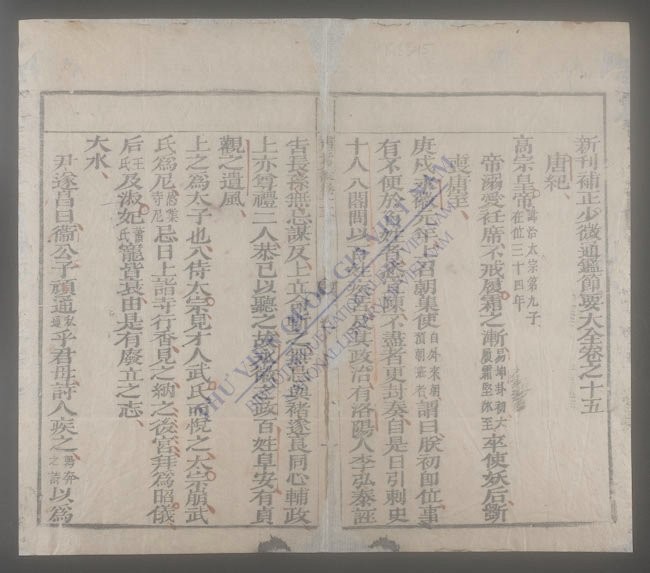 新刊補正少微通鑑節要大全卷之十五
唐紀
高宗皇帝諱治太宗第九子在位三十四年
帝溺愛衽席不戒履霜之漸易坤卦初六履霜堅冰至卒使妖后斲
喪唐室
庚戌永徽元年上召朝集使謂曰朕初即位事
有不便於百姓者悉宜陳不盡者更封奏自是日引刺史
十人入閤問以百姓疾苦及其政治有洛陽人李弘泰誣
告長孫無忌謀反上立命斬之無忌與褚遂良同心輔政
上亦尊禮二人恭己以聽之故永徽之政百姓阜安有貞
觀之遺風
上之為太子也入侍太宗見才人武氏而悅之太宗崩武
氏為尼忌日上詣寺行香見之納之後宮拜為昭儀
后王氏及淑妃蕭氏寵皆衰由是有廢立之志
大水
尹遂昌曰衞公子頑通乎君母詩人疾之以為
THƯ VIỆN QUỐC GIA VIỆT NAM
NATIONAL LIBRARY OF VIETNAM